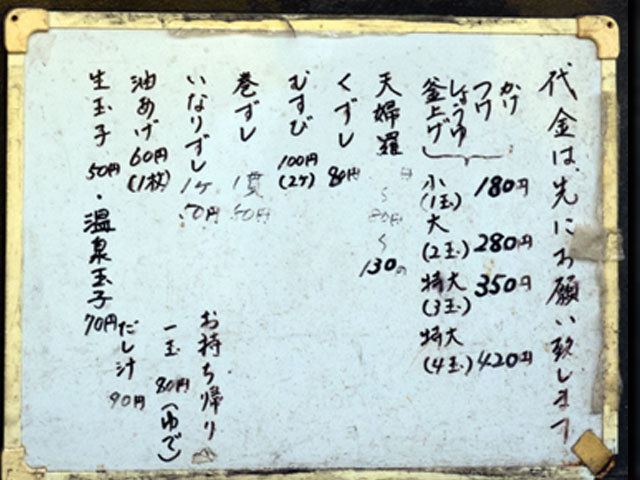 代金は先にお願い致します
かけ
つけ
しょうゆ
釜上げ
小(1玉) 180円
大(2玉) 280円
特大(3玉) 350円
特大(4玉) 420円
天婦羅
円
〜
80円
〜
130円
くずし 80円
むすび 100円(2ケ)
巻ずし 1貫 50円
いなりずし 1ケ 50円
油あげ 60円(1枚)
生玉子 50円・温泉玉子 70円
お持ち帰り
一玉 80円(ゆで)
だし汁 90円